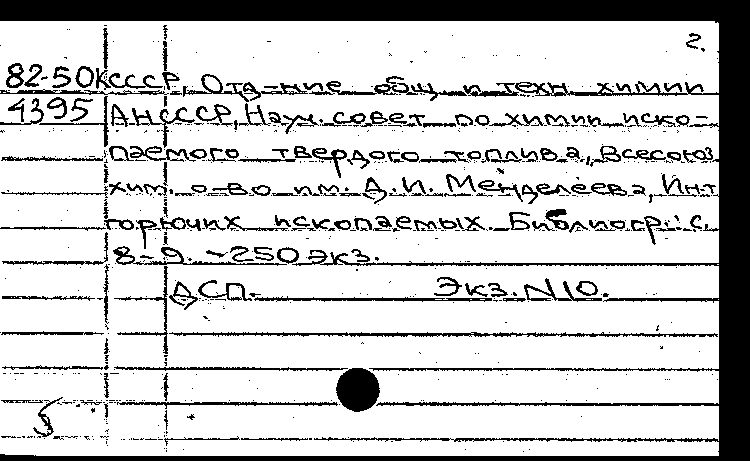 2.
82-5 ОКСССР, Отд-ние общ и техн химии
4395 АНСССР, Науч. совет по химии иско-
паемого твердого топлива, Всесоюз
хим. о-во им. Д.И. Менделеева, Инт
горючих ископаемых. Библиогр.: с.
8-9. -250 экз.
ДСП. Экз. N10.